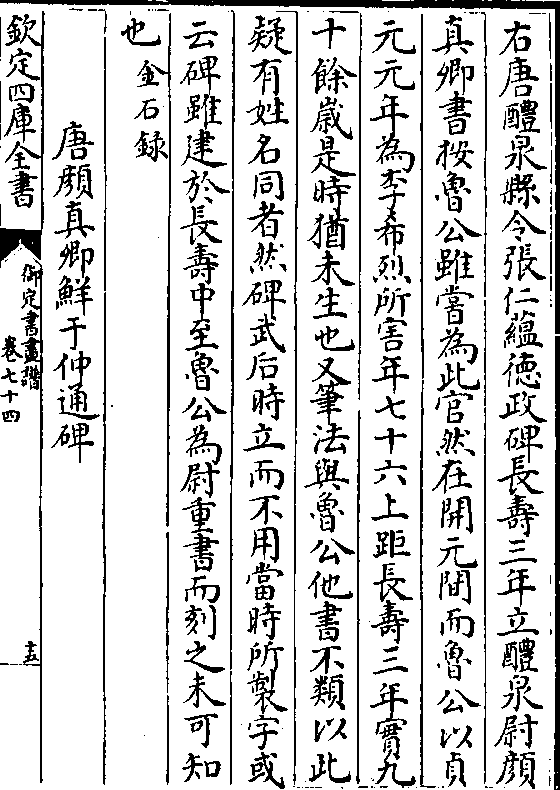 右唐醴泉縣令張仁蘊德政碑長壽三年立醴泉尉顔
真卿書按魯公雖嘗為此官然在開元間而魯公以貞
元元年為李希烈所害年七十六上距長壽三年實九
十餘歳是時猶未生也又筆法與魯公他書不類以此
疑有姓名同者然碑武后時立而不用當時所製字或
云碑雖建於長壽中至魯公為尉重書而刻之未可知
也金石録
唐顔真卿鮮于仲通碑
欽定四庫全書
御定書畫譜
卷七十四
十五